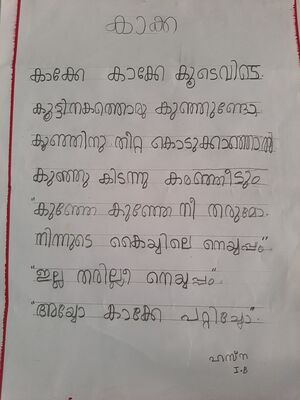 കാക്ക
കാക്കേ കാക്കേ കൂടെവിടെ
കൂട്ടിനകത്തൊരു കുഞ്ഞുണ്ടോ
കുഞ്ഞിനു തീറ്റ കൊടുക്കാഞ്ഞാൽ
കുഞ്ഞു കിടന്നു കരഞ്ഞീടും
"കുഞ്ഞേ കുഞ്ഞേ നീ തരുമോ
നിന്നുടെ കൈയ്യിലെ നെയ്യപ്പം"
"ഇല്ല തരില്ലീ നെയ്യപ്പം"
"അയ്യോ കാക്കേ പറ്റിച്ചോ"
ഹസ്ന
I.B